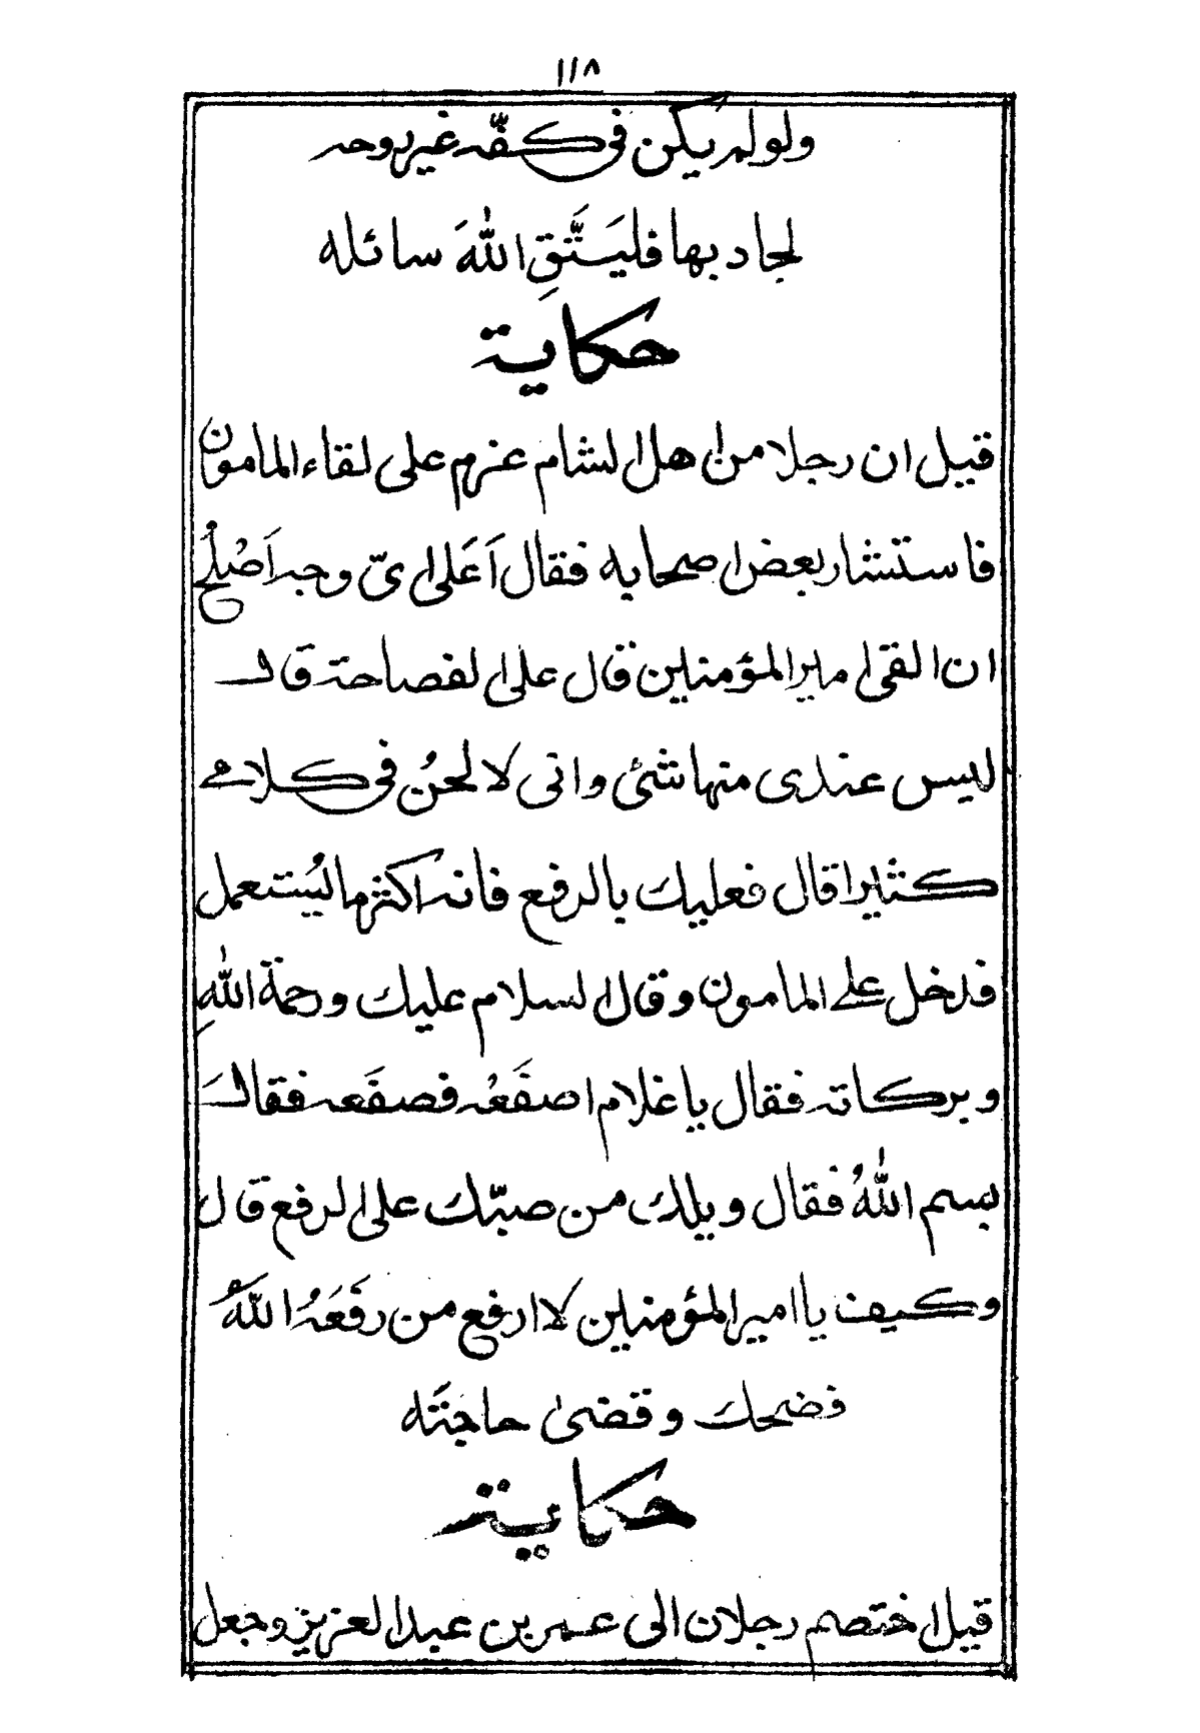 ١١٨
ولو لم يكن فى كفّه غير روحه
لجاد بها فليَتَّقِ اللهَ سائله
حكاية
قيل ان رجلا من اهل الشام عزم على لقاء المامون
فاستشار بعض اصحابه فقال اَعَلى اىّ وجه اَصْلُح
ان القى امير المؤمنين قال على الفصاحة قال
ليس عندى منها شئ وانى لا لحنُ فى كلامى
كثيرا قال فعليك بالرفع فانه اكثر ما يُستعمل
فدخل على المامون وقال السلام عليك ورحمة اللهِ
وبركاته فقال يا غلام اصفَعْه فصفَعه فقالَ
بسم اللهُ فقال ويلك من صبّك على الرفع قال
وكيف يا امير المؤمنين لا ارفع من رفَعَهُ اللهُ
فضحك وقضىٰ حاجتَه
حكاية
قيل اختصم رجلان الى عمر بن عبد العزيز وجعل